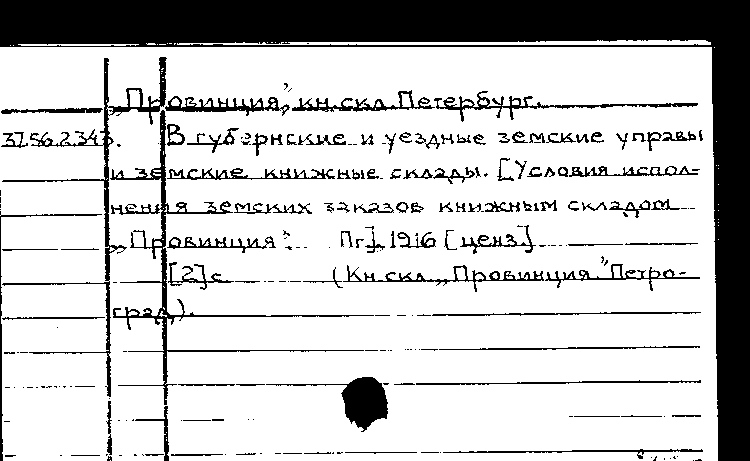 „Провинция", кн. скл. Петербург.
37.56.2.343. В губернские и уездные земские управы
и земские книжные склады. [Условия испол-
нения земских заказов книжным складом
„Провинция". Пг], 1916 [ценз.]
[2] с (Кн. скл. „Провинция." Петро-
град).